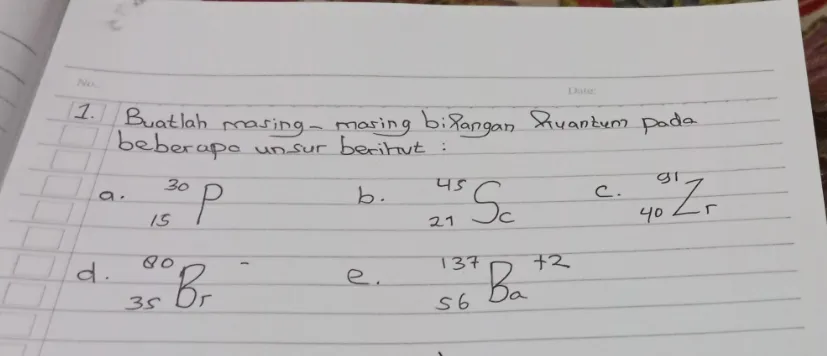 No.
Date:
1. Buatlah masing-masing bilangan kuantum pada
beberapa unsur berikut :
a. ³⁰₁₅P b. ⁴⁵₂₁Sc c. ⁹¹₄₀Zr
d. ⁸⁰₃₅Br⁻ e. ¹³⁷₅₆Ba⁺²